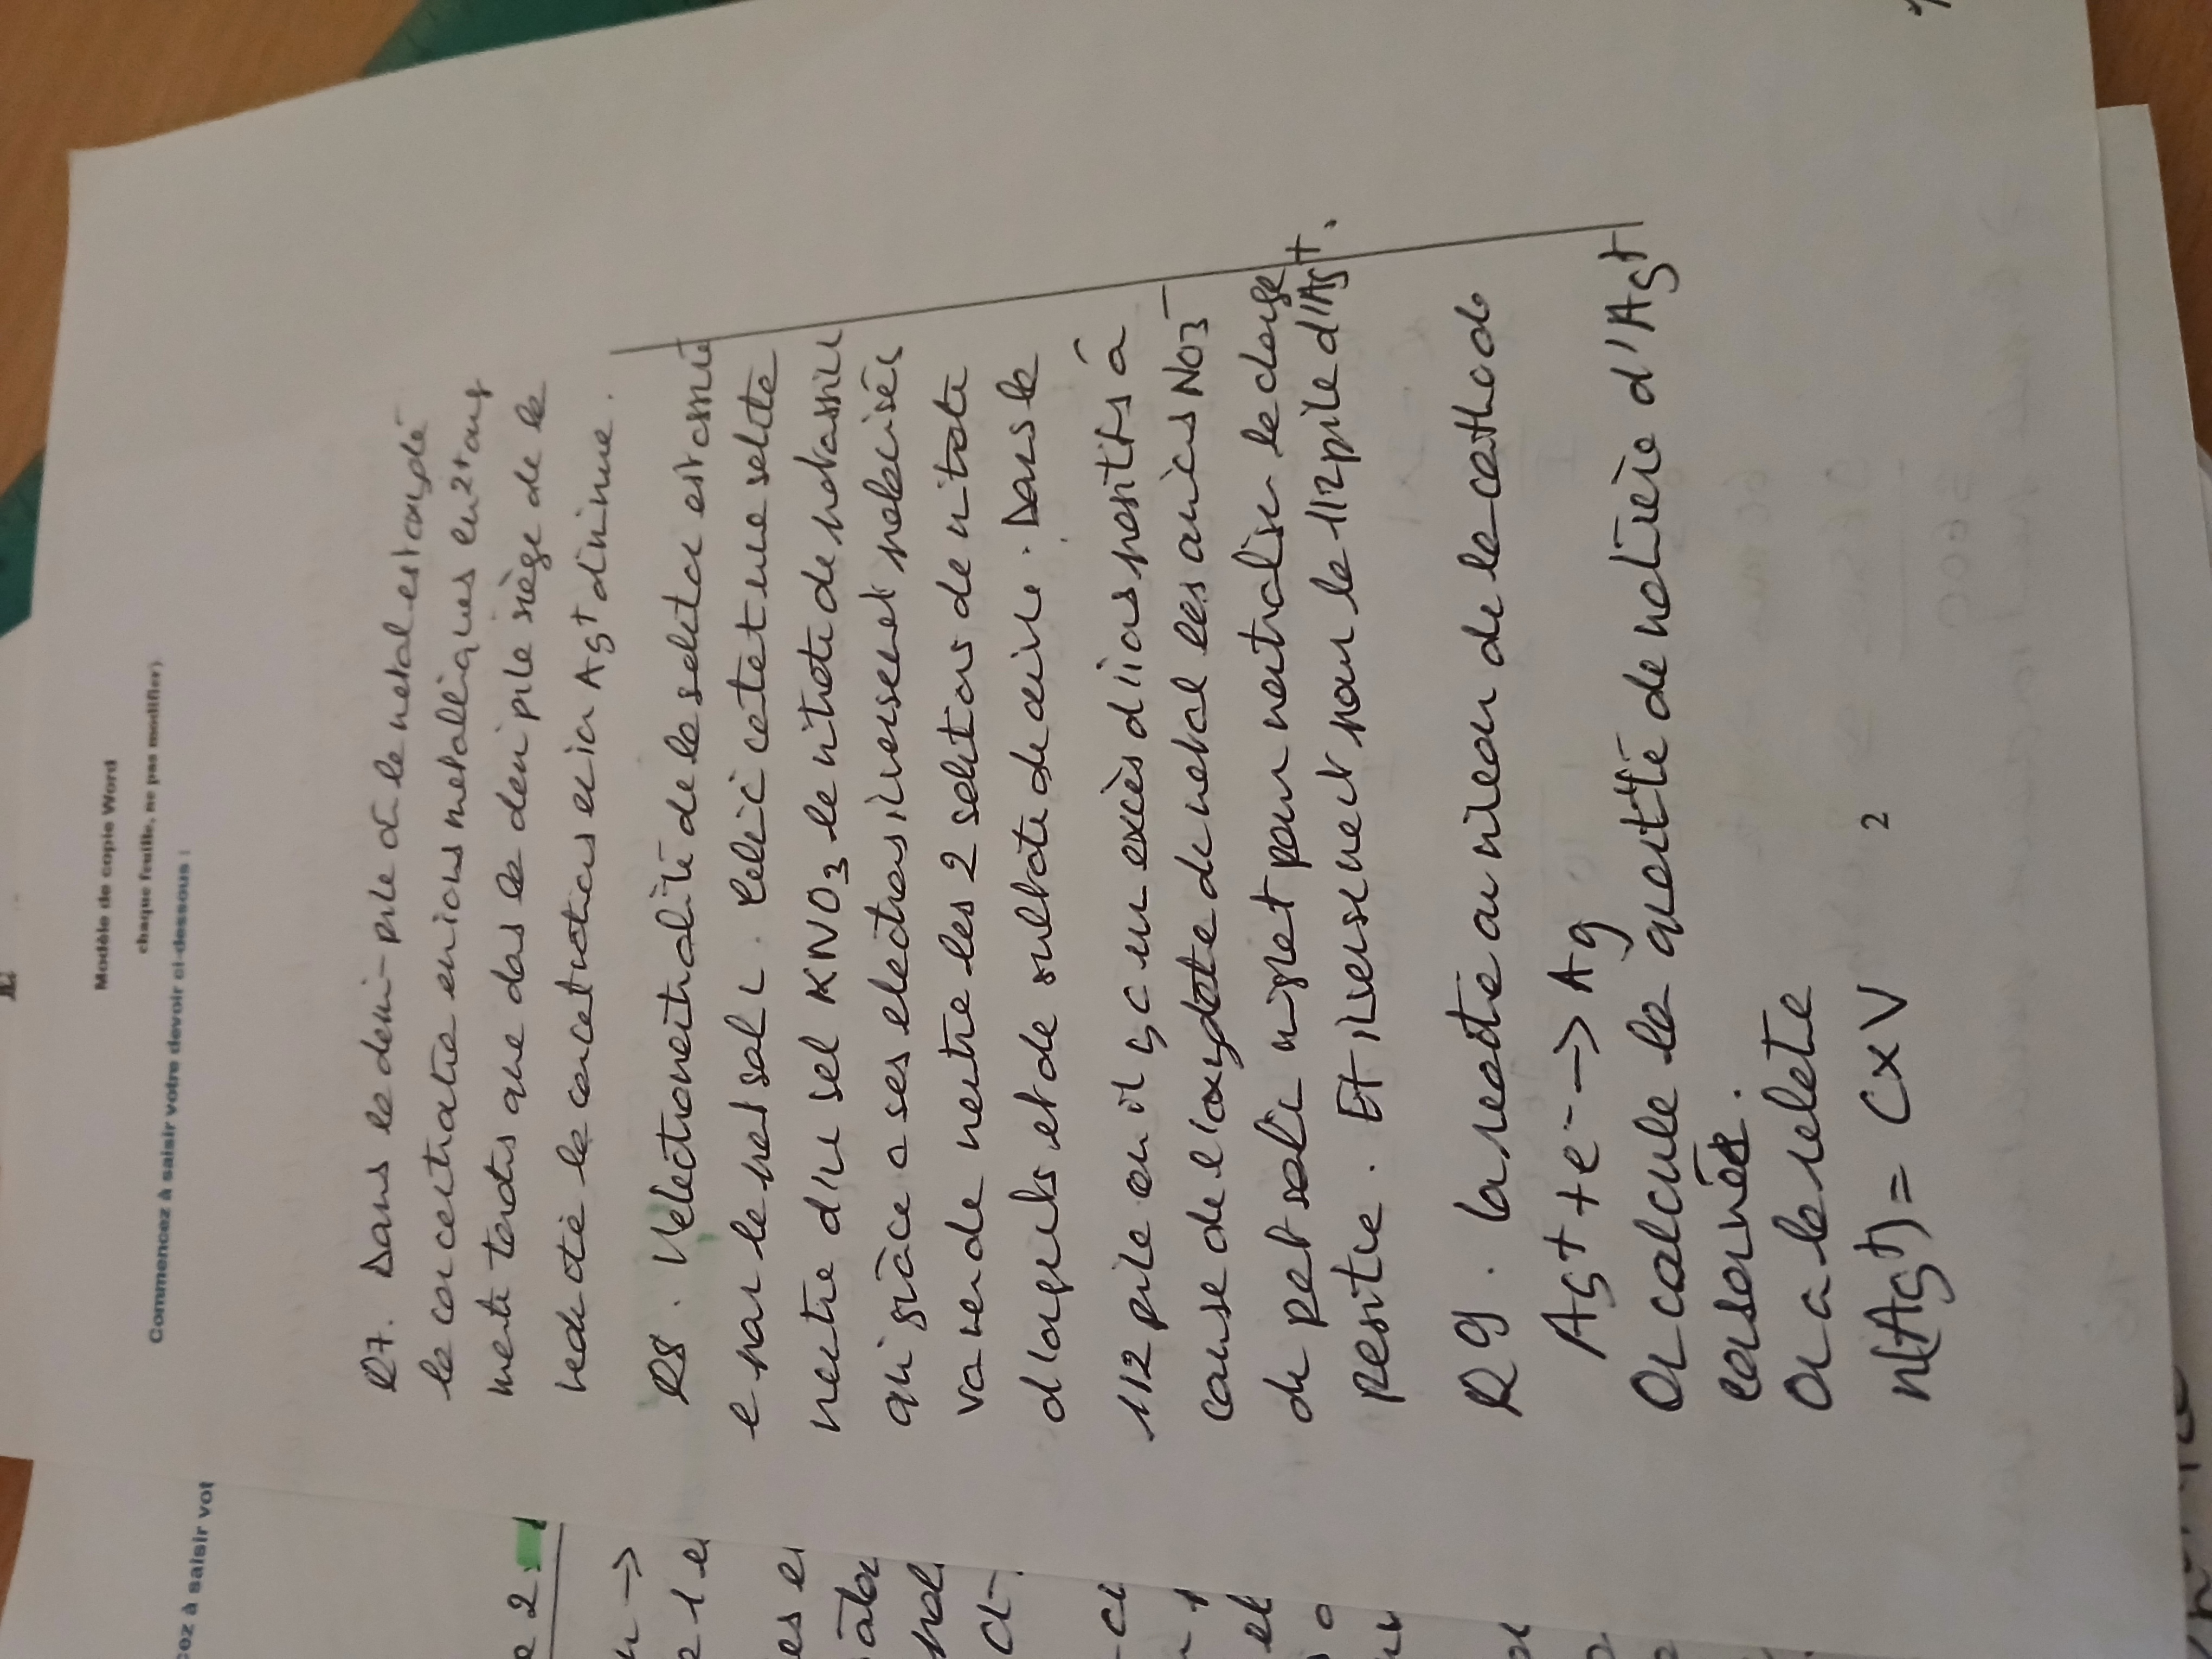 Modèle de copie Word
chaque feuille, ne pas modifier)
Commencez à saisir votre devoir ci-dessous :
Q7. Dans la demi-pile où le métal est oxydé
la concentration en ions métalliques cu2+ aug
mente tandis que dans la demi pile siège de la
réduction la concentration en ion Ag+ diminue.
Q8. l'électroneutralité de la solution est assuré
e par le pont salin. celui ci contient une solution
neutre d'un sel KNO3 le nitrate de potassium
qui grâce a ses electrons inversement polarisés
va rendre neutre les 2 solutions de nitrate
d'argent et de sulfate de cuivre. Dans la
1/2 pile où il y a un excès d'ions positifs à
cause de l'oxydation du métal les anions NO3-
du pont salin migrent pour neutraliser la charge
positive. Et inversement pour la 1/2 pile d'Ag+.
Q9. la réaction au niveau de la cathode
Ag+ + e- -> Ag
On calcule la quantité de matière d'Ag+
consommée.
On a la relation
n(Ag+) = C x V
2
cez à saisir vot
e 2 :